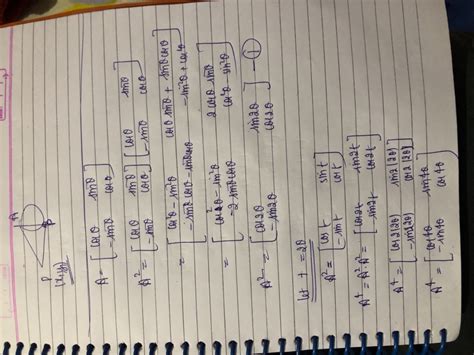 A
P
(x,y)
A = [cosθ sinθ
-sinθ cosθ]
A² = [cosθ sinθ
-sinθ cosθ] [cosθ sinθ
-sinθ cosθ]
= [cos²θ - sin²θ cosθ sinθ + sinθ cosθ
-sinθ cosθ - sinθ cosθ -sin²θ + cos²θ]
= [cos²θ - sin²θ 2 cosθ sinθ
-2 sinθ cosθ cos²θ - sin²θ]
A² = [cos2θ sin2θ
-sin2θ cos2θ] — ①
let t = 2θ
A² = [cos t sin t
-sin t cos t]
A⁴ = A²·A² = [cos2t sin2t
-sin2t cos2t]
A⁴ = [cos2(2θ) sin2(2θ)
-sin2(2θ) cos2(2θ)]
A⁴ = [cos4θ sin4θ
-sin4θ cos4θ]